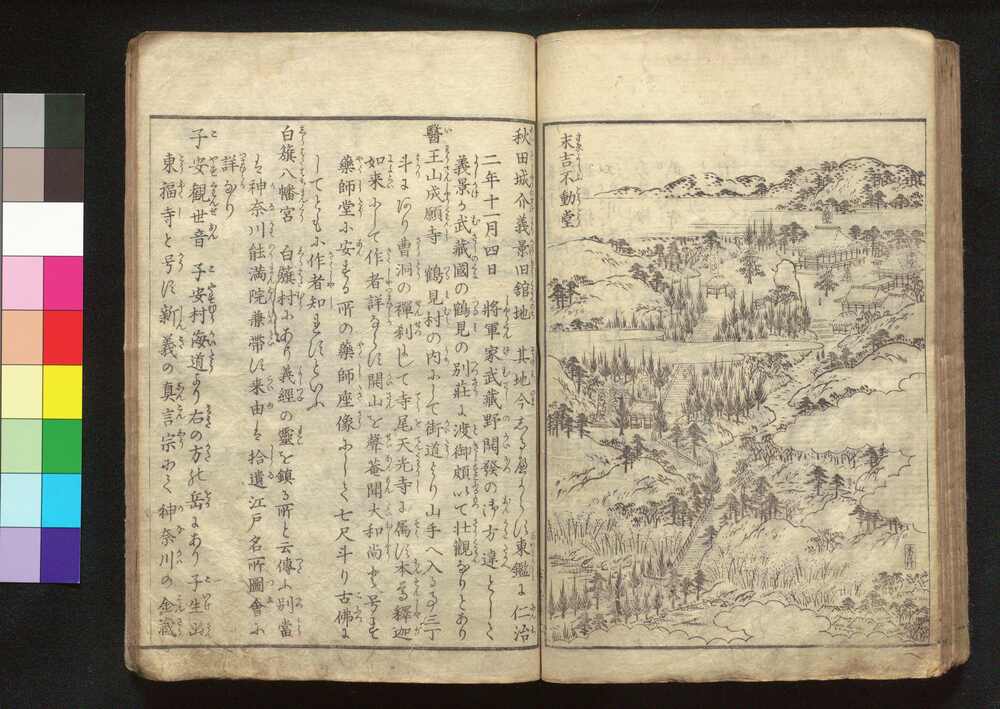 末吉不動堂
秋田城介義景旧舘地 其地今さだかならず東鑑に仁治
二年十一月四日 將軍家武蔵野開發の御方違として
義景が武蔵國の鶴見の別荘に渡御頗以て壮観なりとあり
醫王山成願寺 鶴見村の内にして街道より山手へ入る事三丁
斗にあり曹洞の禅刹にして寺尾天光寺に属す本尊釋迦
如来にして作者詳ならず開山を馨菴開大和尚と号す
藥師堂に安ずる所の藥師座像にして七尺斗り古佛に
してともに作者知れずといふ
白籏八幡宮 白籏村にあり義經の靈を鎮る所と云傳ふ別當
は神奈川能満院兼帯す来由は拾遺江戸名所圖會に
詳なり
子安觀世音 子安村海道より右の方の岳にあり子生山
東福寺と号す新義の真言宗にて神奈川の金蔵